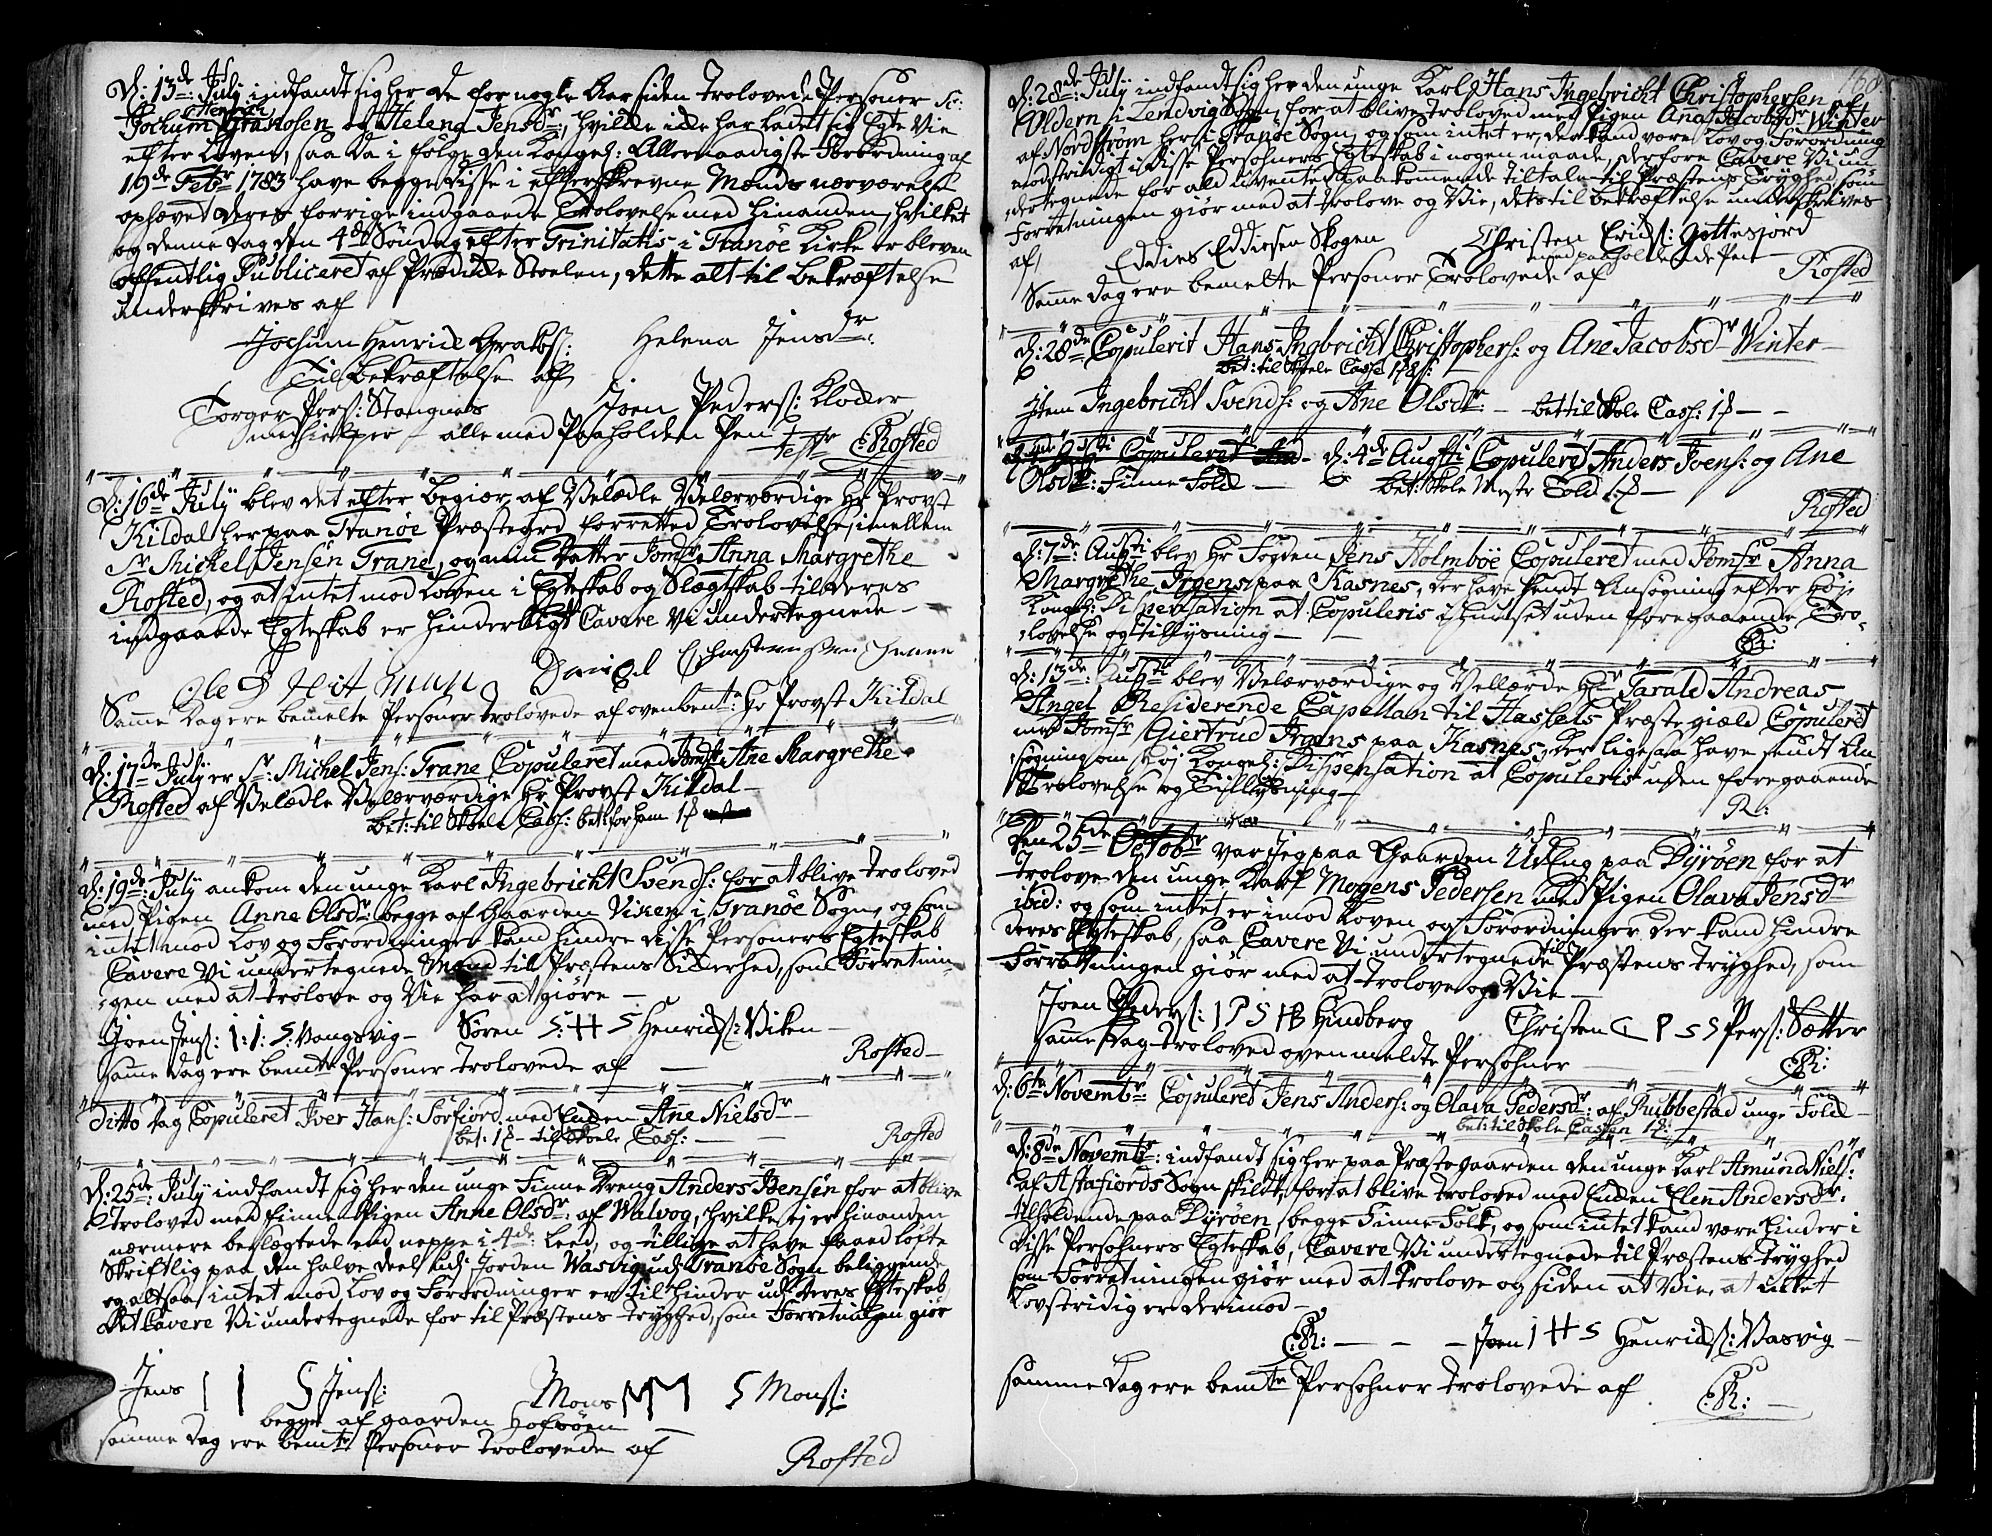 D: 13de July indfandt sig her de for nogle Aar siden Trolovede Personer Sr:
Jochum Henrich Gratosen og Helena Jensdr:, hvilke icke har ladet sig Egte Vie
efter Loven, saa da i følge den Kongel: Allernaadigste Forordning af
19de Febr 1783 have begge disse i efterskrevne Mænds nærværelse
ophævet deres forrige indgaaede Trolovelse med hinanden, hvilket
og denne dag den 4de Søndag efter Trinitatis i Tranöe Kirke er bleven
offentlig Publiceret af Prædike Stoelen, dette alt til bekræftelse
underskrives af
Jochum Henrick Gratos: Helena Jensdr:
Til bekræftelse af
Torger Pers: Stangnes Joen Peders: Klöcker
medhielper – alle med Paaholden Pen
test E: Rosted
D: 16de July blev det efter begiær af Velædle Velærværdige Hr Provst
Kildal her paa Tranöe Præstegrd forretted Trolovelse imellem
Sr Michel Jensen Trane, og min Datter Jomfr Anna Margrethe
Rosted, og at intet mod Loven i Egteskab og Slægtskab til deres
indgaaede Egteskab er hinderligt Cavere Vi undertegnede –
Ole Heitman Daniel Christensen Trane
Samme dag ere bemelte Personer trolovede af ovenbente: Hr Provst Kildal
D: 17de July er Sr: Michel Jens: Trane Copuleret med Jomfr Ane Margrethe
Rosted af Velædle Velærværdige Hr Provst Kildal –
bet: til Skole Cass: bet: for ham 1
D: 19de July ankom den unge Karl Ingebricht Svends: for at blive troloved
med Pigen Anne Olsdr: begge af Gaarden Viken i Tranöe Sogn, og som
intet mod Lov og Forordninger kand hindre disse Personers Egteskab
Cavere Vi undertegnede Mænd til Præstens Sickerhed, som Forretnin-
gen med at trolove og Vie har at giöre –
Joen Jens: I: I: S: Vangsvig – Sören S: H S Henrichs: Viken –
samme dag ere bemte Personer trolovede af – Rosted –
Ditto dag Copuleret Iver Hans: Sörfiord med Enken Ane Nielsdr –
bet: 1 – til Skole Cass: – Rosted
D: 25de: July indfandt sig her den unge Finne Dreng Anders Joensen for at blive
trolovet med finne Pigen Anne Olsdr: af Walvog, hvilke ej er hinanden
nærmere beslægtede end neppe i 4de: Leed, og tillige at have faaed löfte
skriftlig paa den halve deel udi Jorden Wasvig udi Tranöe Sogn beliggende
og altsaa intet mod Lov og Forordninger er til hinder udi deres Egteskab
det Cavere Vi undertegnede for til Præstens tryghed, som Forretningen giör
Jens I I S Jens: Mons M M S Mons:
begge af gaarden Hofsöen
samme dag ere bemte Personer trolovede af –
Rosted
D: 28de July indfandt sig her den unge Karl Hans Ingebricht Christophersen
Oldern i Lendvig Sogn, for at blive troloved med Pigen Ana Jacobsdr Winter
af Nordstrøm her i Tranöe Sogn, og som intet er, der kand være Lov og Forordning
modstridigt i disse Persohners Egteskab i nogen maade, derfore Cavere Vi un-
dertegnede for ald uvented paakommende tiltale til Præstens Tryghed, som
Forretningen giör med at trolove og Vie, dets til bekræftelse underskrives
af Eddies Eddiesen Skogen Christen Erichs: Gottesjord
med paaholdende Pen –
Samme dag ere bemelte Personer Trolovede af Rosted
D: 28de Copulerit Hans Ingbricht Christophers: og Ane Jacobsdr Winter –
bet: til Skole Casse
Item Ingebricht Svends: og Ane Olsdr: – bet til Skole Cass: 1 – –
D: 4de Augsti Copuleret Anders Joens: og Ane
Olsdr: Finne Folck – bet: Skole Mestr Told 1 –
Rosted
D: 7de: Augsti blev Hr Fogden Jens Holmboe Copuleret med Jomfr Anna
Margrethe Irgens paa Kasnes, der have sendt Ansögning efter höj
Kongel: Dispensation at Copuleris i Huuset uden foregaaende Tro-
lovelse og tillysning –
ER:
D: 13de: Augsti blev Velærværdige og Vellærde Hr Tarald Andreas
Angel Residerende Capellan til Hassels Præstegiæld Copuleret
med Jomfr Giertrud Irgens paa Kasnes, der ligesaa have sendt An-
søgning om höj Kongel: Dispensation at Copuleris uden foregaaende
Trolovelse og Tillysning –
R:
Den 25de Octobr var jeg paa Gaarden paa Dyröen for at
trolove den unge Karl Mogens Pedersen med Pigen Olava Jensdr
ibid: og som intet er imod Loven og Forordninger der kand hindre
deres Egteskab, saa Cavere Vi undertegnede til Præstens tryghed, som
Forretningen giör med at trolove og Vie –
Joen Peders: I P S HB Hindberg Christen C P S S Pers: Sætter
samme dag troloved ovenmeldte Persohner – ER:
D: 6te Novembr Copuleret Jens Anders: og Olava Pedersdr: af Rubbestad unge Folck –
bet: til Skole Cassen 1:
D: 8de Novembr: indfandt sig her paa Præstegaarden den unge Karl Amund Niels:
af Astafiords Sogn skildt, for at blive trolovet med Enken Elen Andersdr:
tilholdende paa Dyröen begge Finne Folk, og som intet kand være hinder i
disse Persohners Egteskab, Cavere Vi undertegnede til Præstens tryghed
som Forretningen giör med at trolove og siden at Vie, at intet
Lovstridig er derimod –
ER: – – – Joen I H S Henrichs: Vasvig –
samme dag ere bemte Persohner trolovede af ER: –